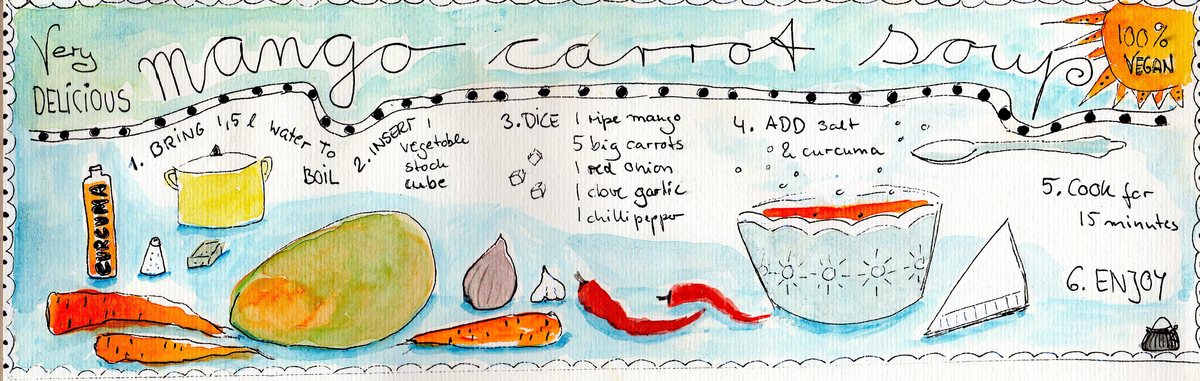 Very
DELICIOUS
mango carrot soup
100%
VEGAN
1. BRING 1,5 l water To
BOIL
2. INSERT 1
vegetable
stock
cube
3. DICE 1 ripe mango
5 big carrots
1 red onion
1 clove garlic
1 chilli pepper
4. ADD salt
& curcuma
5. Cook for
15 minutes
6. ENJOY
CURCUMA